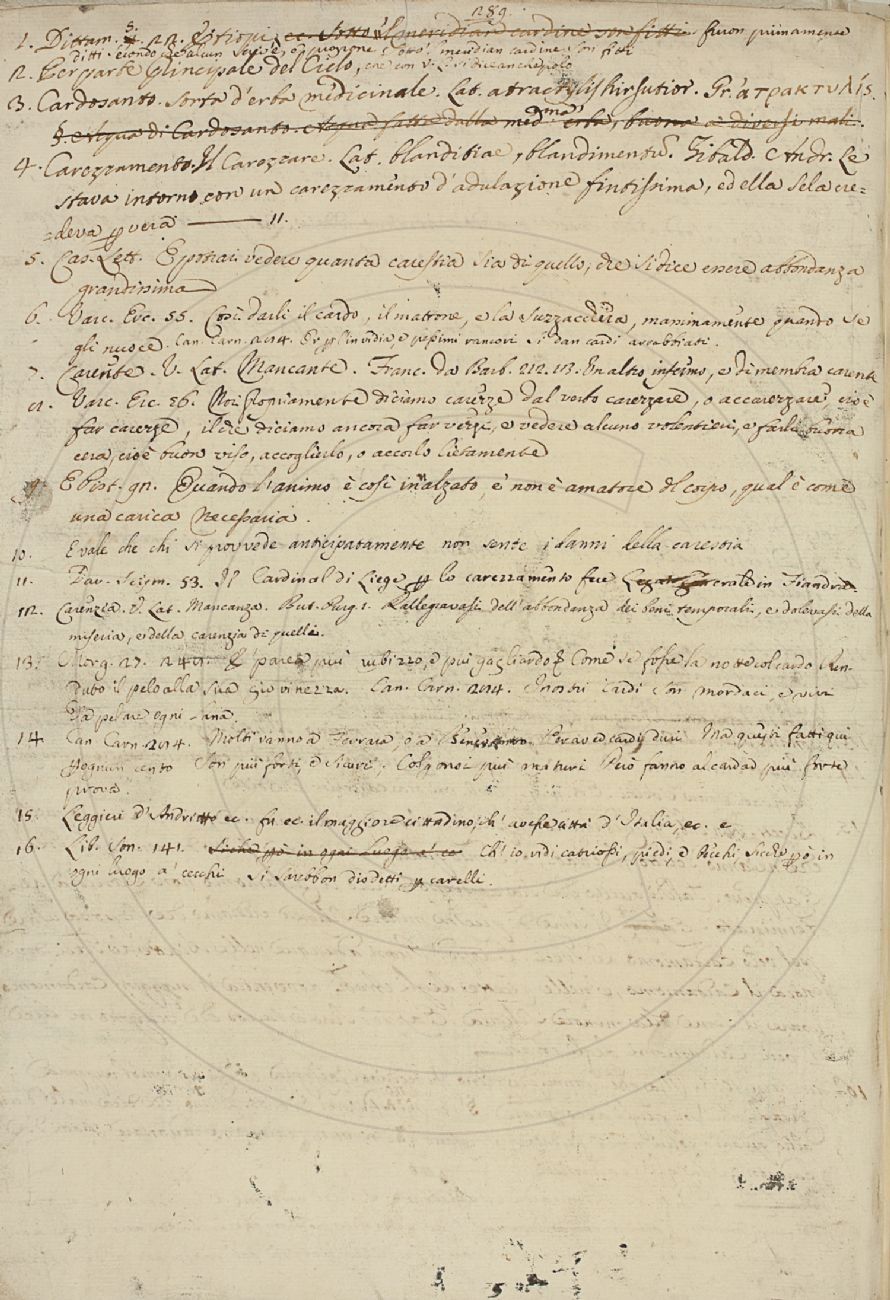 289.
1. Dittam. 5. 22. Etiopi, ec. Sotto il meridian cardine son fitti. furon primamente
ditti secondo ch'alcun scrive, e Sotto 'l meridian cardine son fitti
2. Per parte principale del Cielo, che con V. L. si dice anche polo
3. Cardosanto. Sorta d'erba medicinale. Lat. atractylis hirsutior. Gr. ἀτρακτυλίς.
§. Acqua di Cardosanto. Acqua fatta dalla med.ma erba, buona a diversi mali.
4. Carezzamento. Il Carezzare. Lat. blanditiae, blandimentũ. Tibald. Andr. Le
stava intorno con un carezzamento d'adulazione fintissima, ed ella se la cre=
=deva p vera ——— 11.
5. Cas. Lett. E potrai vedere quanta carestia sia di quello, che si dice essere abbondanza
grandissima
6. Varc. Erc. 55. Così: darli il cardo, il mattone, e la suzzacchera, massimamente quando se
gli nuoce. Can. Carn. 214. Er p l'invidia, e pessimi rancori si dan cardi arrabbiati.
7. Carente. V. Lat. Mancante. Franc. da Barb. 212. 13. Un altro infermo, e di membra carente
Varc. Erc. 56. Noi propriamente diciamo carezze dal verbo carezzare, o accarezzare, cioè
far carezze, il che diciamo ancora far vezzi, e vedere alcuno volentieri, e farli buona
cera, cioè buon viso, accoglierlo, o accorlo lietamente
9. E Pist. 92. Quando l'animo è così inalzato, e non è amatore del corpo, qual è come
una carica necessaria.
10. E vale che chi si provvede anticipatamente non sente i danni della carestia
11. Dav. Scism. 53. Il Cardinal di Liege p lo carezzamento fue Legato in Fiandra.
12. Carenzia. V. Lat. Mancanza. But. Purg. 1. Rallegravasi dell'abbondanza dei beni temporali, e dolevasi della
miseria, e della carenzia di quelli.
13. Morg. 27. E' parea più rubizzo, e più gagliardo Come se fosse la notte col cardo Ren=
duto il pelo alla sua giovinezza. Can. Carn. 214. I nostri cardi son mordaci, e vivi
Da pelare ogni lana.
14. Can Carn. 214. Molti vanno a Ferrara, o a Per aver cardi duri Ma questi fatti qui
p ognun cento Son più forti, e sicuri, Colgonsi più maturi Però fanno al cardar più forte
prova.
15. Leggieri d'Andriotto ec. fu ec. il maggiore cittadino, ch' avesse città d'Italia, ec. e
16. Lib. Son. 141. Sicchè pò in ogni luogo a' ce Ch' io vidi catriossi, piedi, e becchi, Sicchè pò in
ogni luogo a' cecchi Si sarebbon diodetti p cavelli.